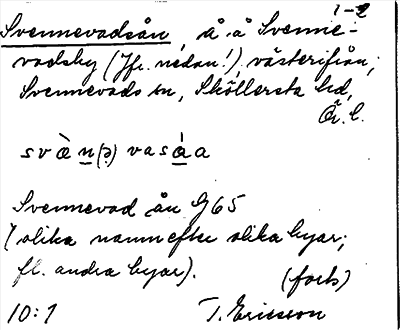 1-2
Svennevadsån, å. å Svenne-
vadsby (Jfr. nedan!) västerifrån;
Svennevads sn, Sköllersta hd,
Ör. l.
svὲn(ə)vasáa
Svennevad ån G65
(olika namn efter olika byar;
fl. andra byar). (forts)
10:1 T. Ericsson